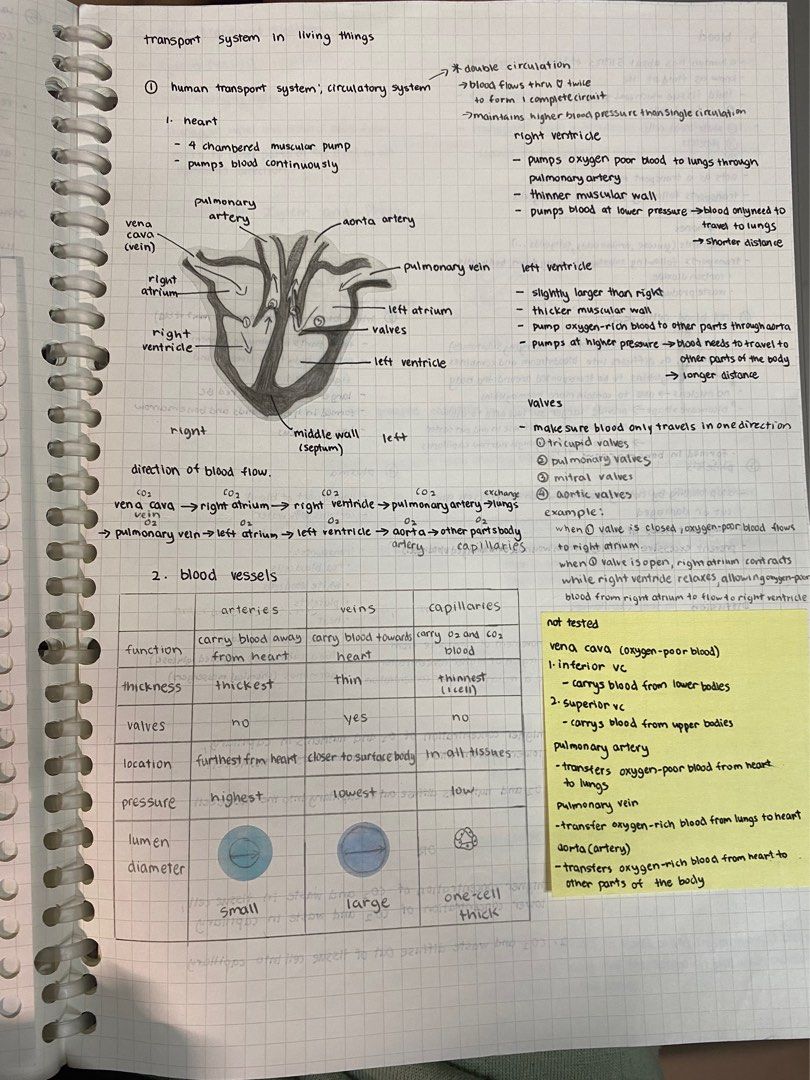 transport system in living things
① human transport system; circulatory system
* double circulation
→ blood flows thru ♡ twice
to form 1 complete circuit
→ maintains higher blood pressure than single circulation
1. heart
- 4 chambered muscular pump
- pumps blood continuously
pulmonary
artery
aorta artery
vena
cava
(vein)
pulmonary vein
right
atrium
left atrium
valves
right
ventricle
left ventricle
①
②
③
middle wall
(septum)
right
left
right ventricle
- pumps oxygen poor blood to lungs through
pulmonary artery
- thinner muscular wall
- pumps blood at lower pressure → blood only need to
travel to lungs
→ shorter distance
left ventricle
- slightly larger than right
- thicker muscular wall
- pump oxygen-rich blood to other parts through aorta
- pumps at higher pressure → blood needs to travel to
other parts of the body
→ longer distance
valves
- make sure blood only travels in one direction
① tricupid valves
② pulmonary valves
③ mitral valves
④ aortic valves
example:
when ① valve is closed, oxygen-poor blood flows
to right atrium.
when ① valve is open, right atrium contracts
while right ventricle relaxes, allowing oxygen-poor
blood from right atrium to flow to right ventricle
direction of blood flow.
CO2 CO2 CO2 CO2 exchange
vena cava → right atrium → right ventricle → pulmonary artery → lungs
vein
O2 O2 O2 O2 O2
→ pulmonary vein → left atrium → left ventricle → aorta → other parts body
artery capillaries
2. blood vessels
arteries veins capillaries
function carry blood away from heart carry blood towards heart carry O2 and CO2 blood
thickness thickest thin thinnest (1cell)
valves no yes no
location furthest frm heart closer to surface body in all tissues
pressure highest lowest low
lumen diameter small large one-cell thick
not tested
vena cava (oxygen-poor blood)
1. inferior vc
- carrys blood from lower bodies
2. superior vc
- carrys blood from upper bodies
pulmonary artery
- transfers oxygen-poor blood from heart
to lungs
pulmonary vein
- transfer oxygen-rich blood from lungs to heart
aorta (artery)
- transfers oxygen-rich blood from heart to
other parts of the body